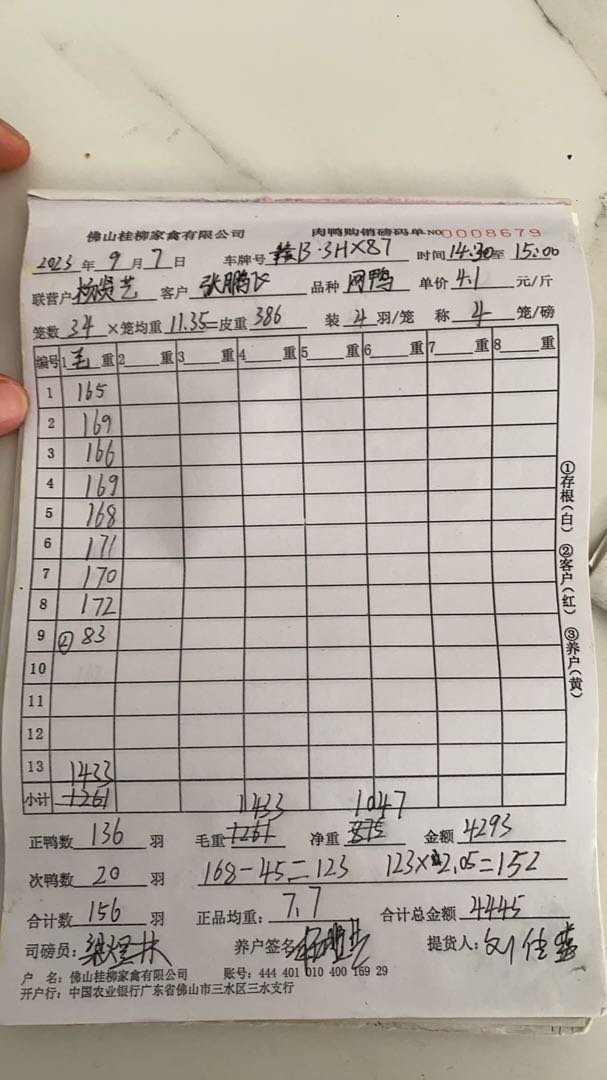 佛山桂柳家禽有限公司 肉鸭购销磅码单 NO 0008679
2023 年 9 月 7 日 车牌号 赣B·3HX87 时间 14:30 至 15:00
联营户 杨贤艺 客户 张鹏飞 品种 网鸭 单价 4.1 元/斤
笼数 34 ×笼均重 11.35=皮重 386 装 4 羽/笼 称 4 笼/磅
编号 1 毛 重 2 重 3 重 4 重 5 重 6 重 7 重 8 重
1 165
2 169
3 166
4 169
5 168
6 171
7 170
8 172
9 ② 83
10
11
12
13 1433
小计 1261
1433 1047
正鸭数 136 羽 毛重 1261 净重 875 金额 4293
次鸭数 20 羽 168-45=123 123×2.05=152
合计数 156 羽 正品均重: 7.7 合计总金额 4445
司磅员: 养户签名 提货人:
户 名: 佛山桂柳家禽有限公司 账号: 444 401 010 400 169 29
开户行: 中国农业银行广东省佛山市三水区三水支行
①存根(白) ②客户(红) ③养户(黄)